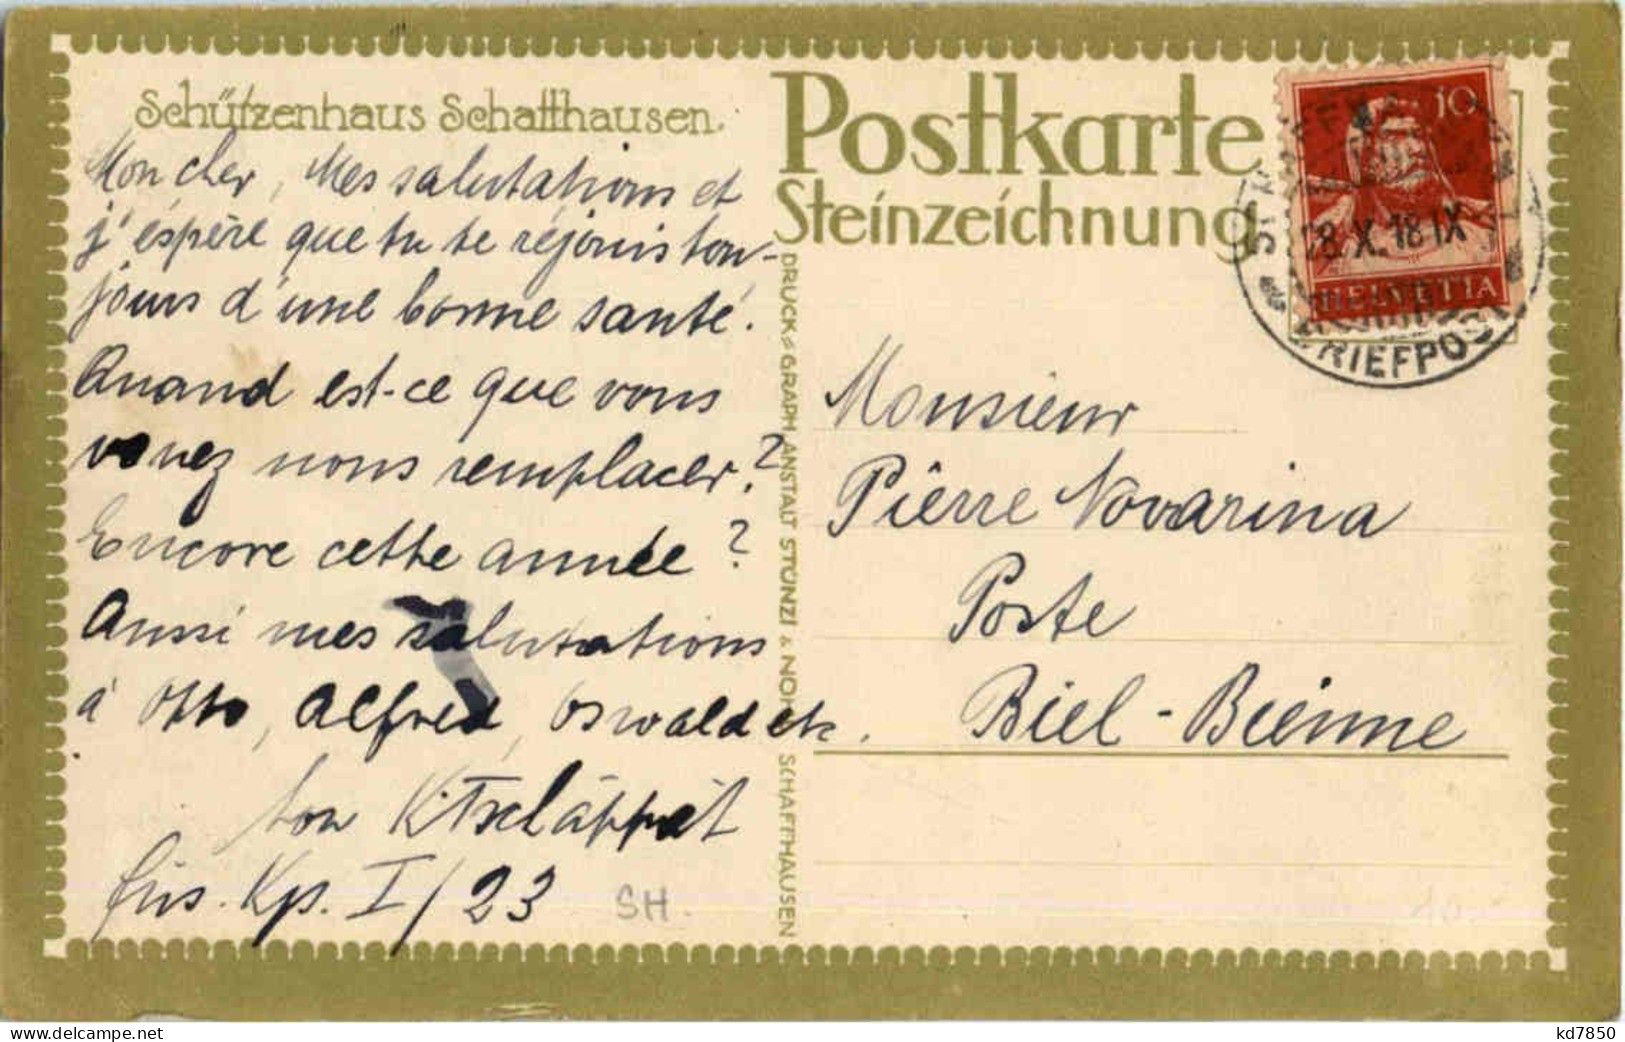 Schützenhaus Schaffhausen.
Mon cher, Mes salutations et
j'éspère que tu te réjouis tou-
jours d'une bonne santé.
Quand est-ce que vous
venez nous remplacer?
Encore cette année?
Aussi mes salutations
à Otto, Alfred, Oswald etc.
ton K. Tschläppät
Füs. Kp. I/23
SH.
DRUCK GRAPH. ANSTALT STÜNZI & SCHAFFHAUSEN
Postkarte
Steinzeichnung
10
28.X.18 IX
HELVETIA
BRIEFPOST
Monsieur
Pierre Novarina
Poste
Biel-Bienne
kd7850